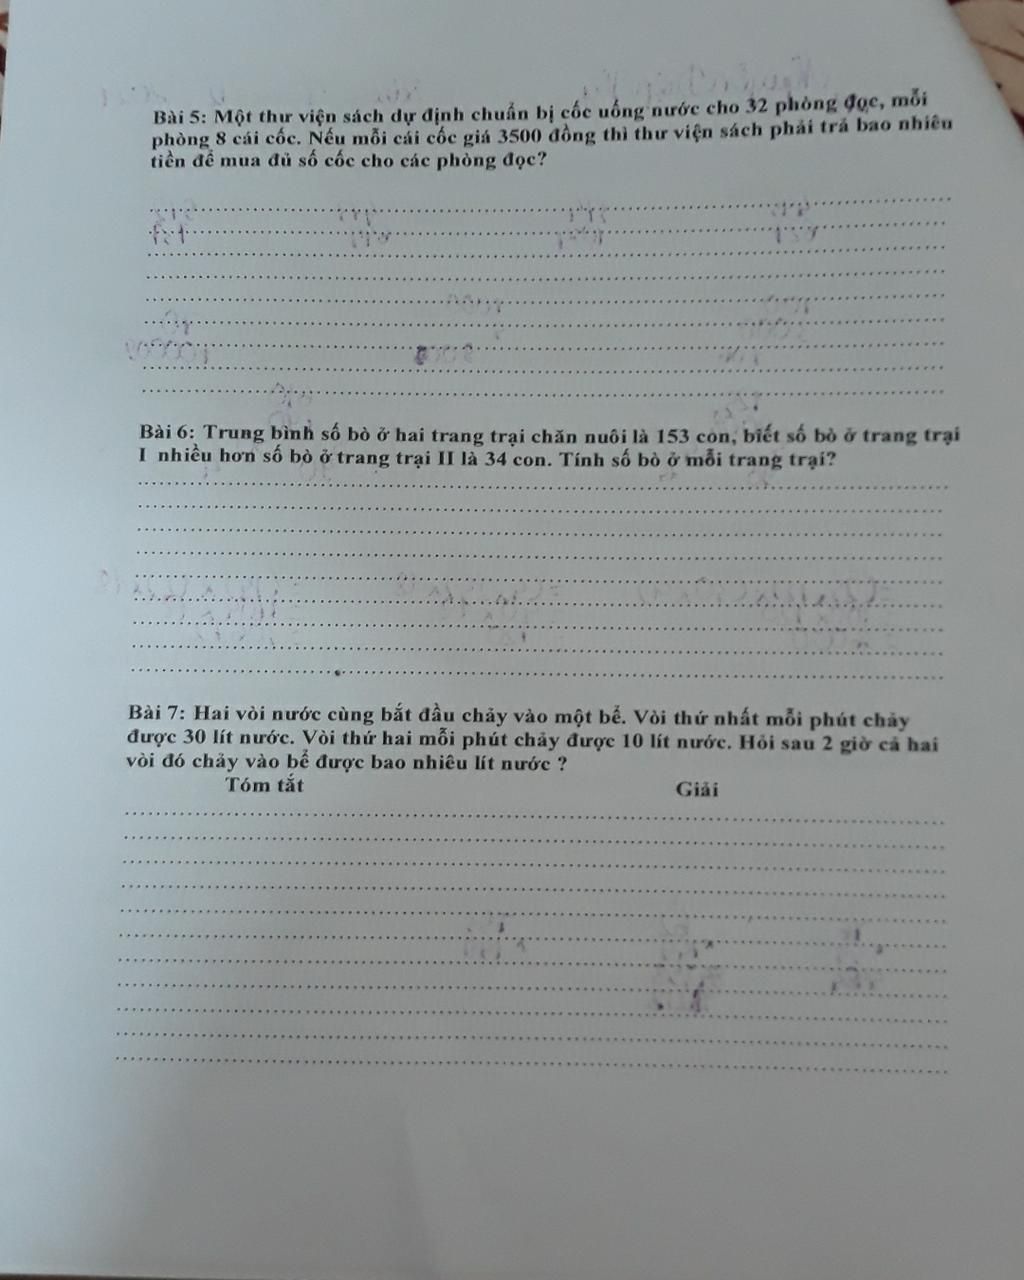 Bài 5: Một thư viện sách dự định chuẩn bị cốc uống nước cho 32 phòng đọc, mỗi
phòng 8 cái cốc. Nếu mỗi cái cốc giá 3500 đồng thì thư viện sách phải trả bao nhiêu
tiền để mua đủ số cốc cho các phòng đọc?
Bài 6: Trung bình số bò ở hai trang trại chăn nuôi là 153 con, biết số bò ở trang trại
I nhiều hơn số bò ở trang trại II là 34 con. Tính số bò ở mỗi trang trại?
Bài 7: Hai vòi nước cùng bắt đầu chảy vào một bể. Vòi thứ nhất mỗi phút chảy
được 30 lít nước. Vòi thứ hai mỗi phút chảy được 10 lít nước. Hỏi sau 2 giờ cả hai
vòi đó chảy vào bể được bao nhiêu lít nước ?
Tóm tắt Giải